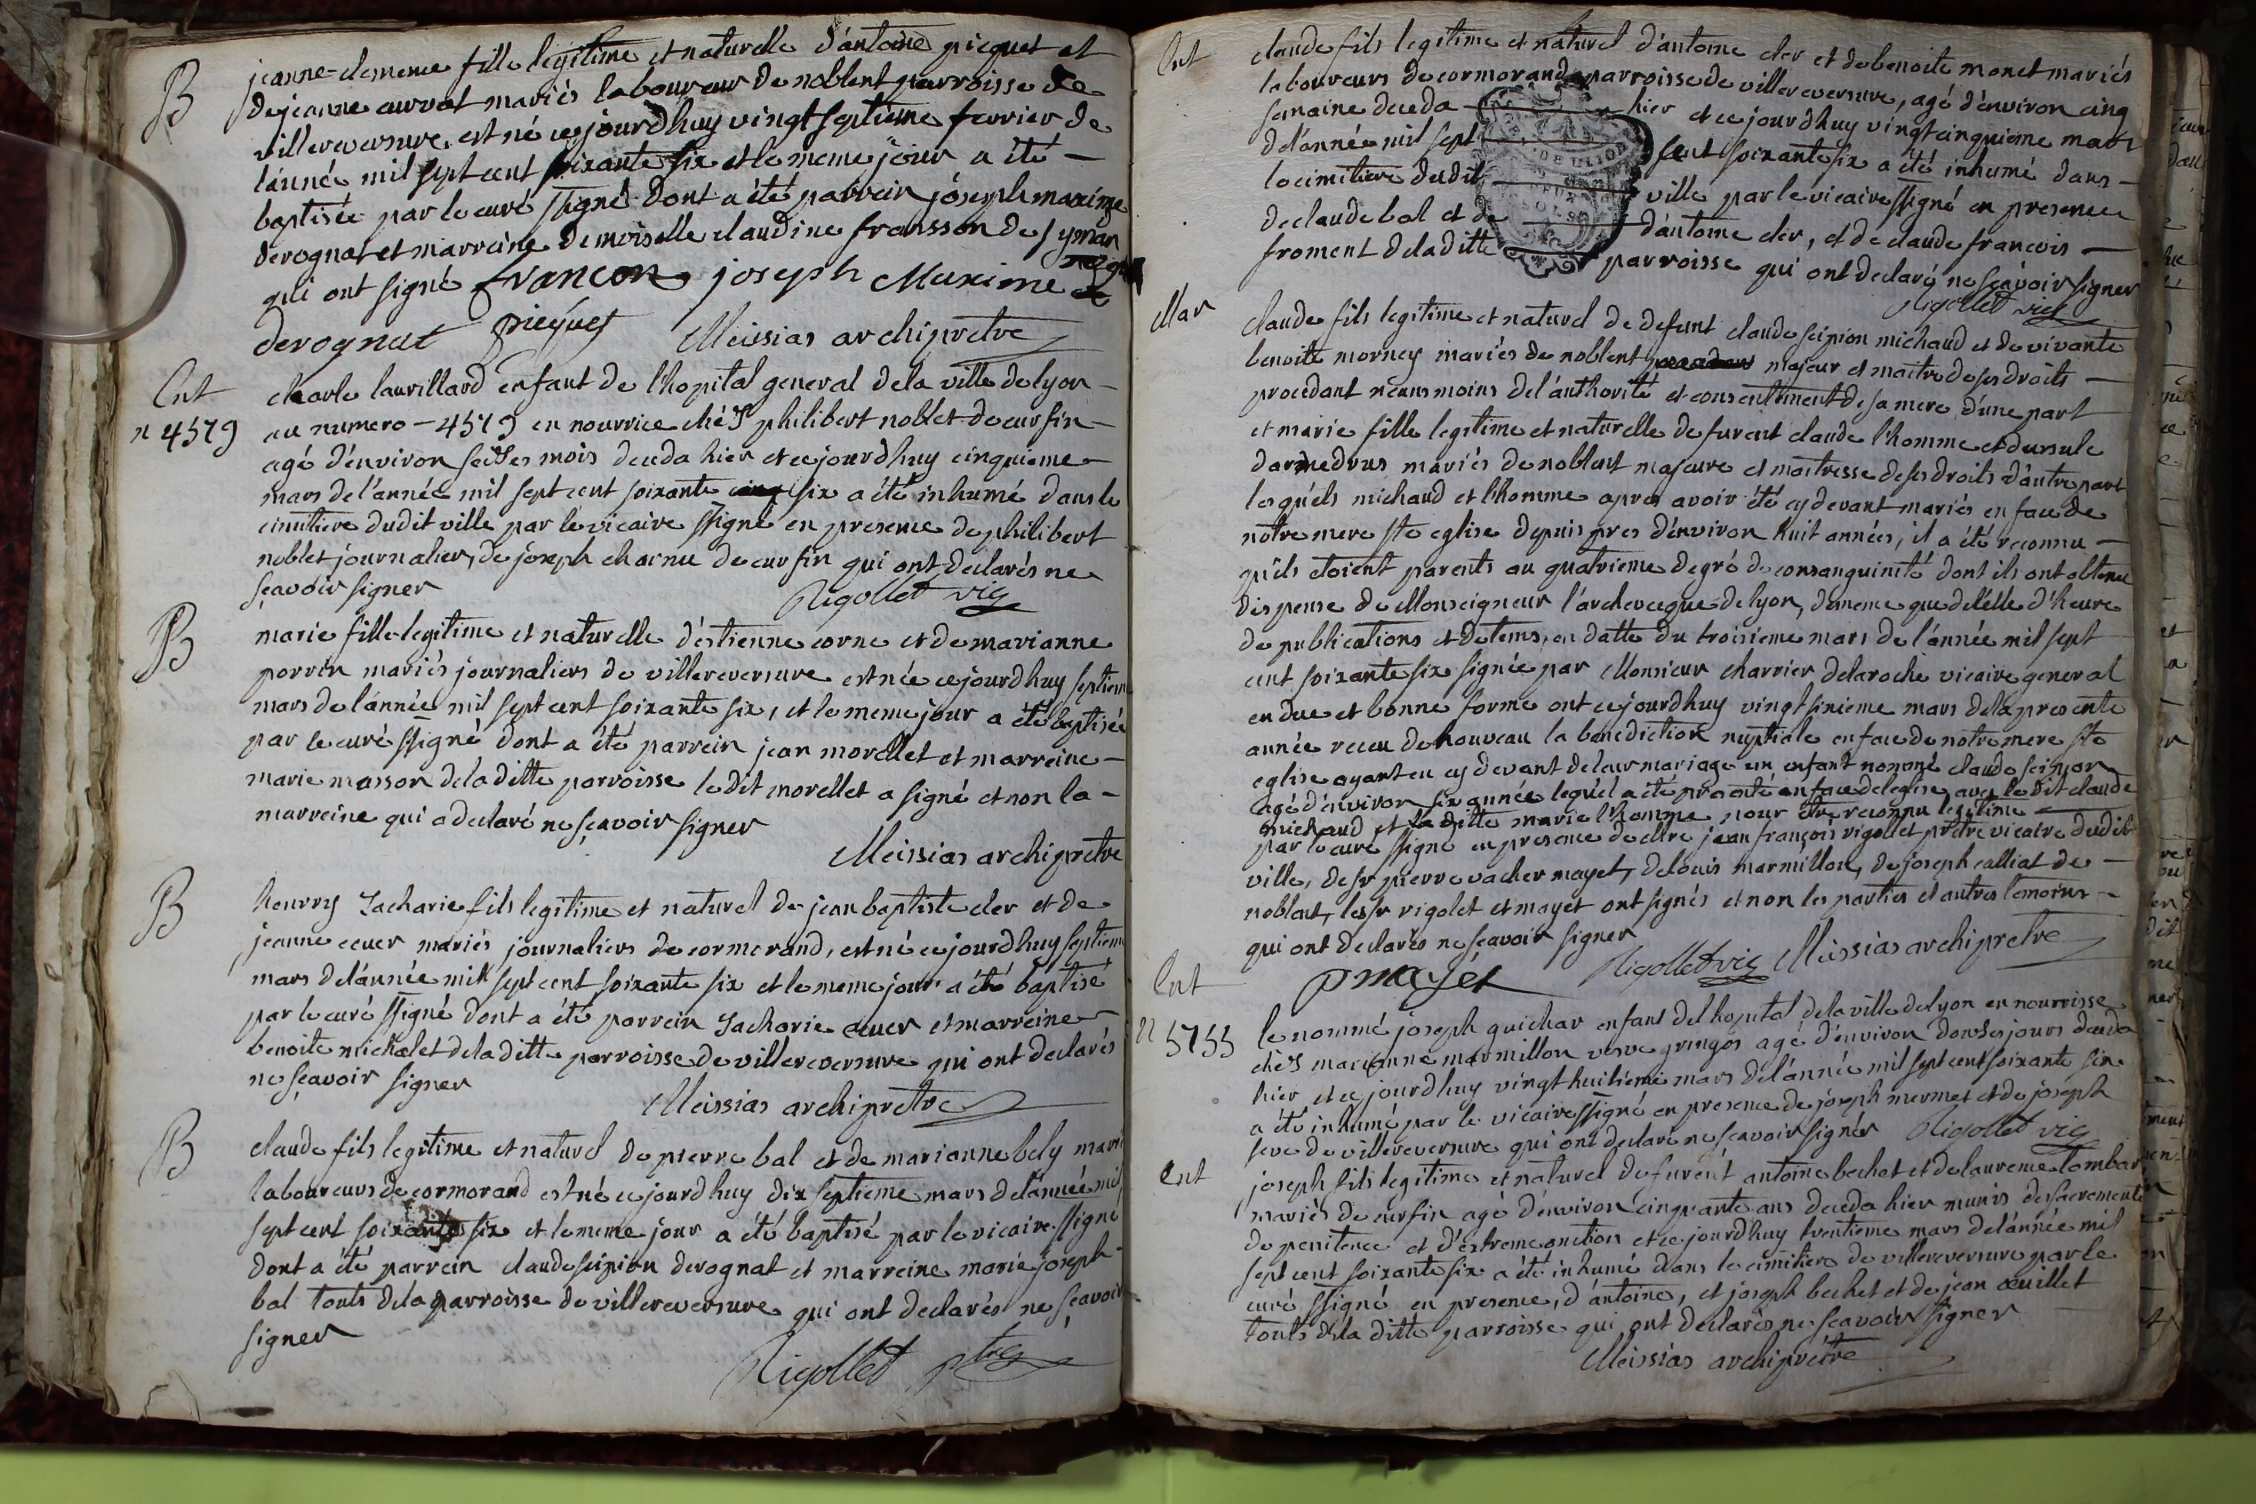 B
jeanne-clemence fille legitime et naturelle d'antoine picquet et
de jeanne curvat mariés laboureur de noblent parroisse de
villereversure, est né ce jourdhuy vingt septieme fevrier de
l'année mil sept cent soixante six et le meme jour a été —
baptisée par le curé ssigné dont a été parrein joseph maxime
derognat et marreine demoiselle claudine fransson de
qui ont signé francon joseph Maxime
derognat picquet Meissias archipretre
Ent
n 4579
charle laurillard enfant de l'hopital general de la ville de lyon —
au numero — 4579 en nourrice chés philibert noblet de curfin —
agé d'environ seises mois deceda hier et ce jourdhuy cinquieme
mars de l'année mil sept cent soixante six a été inhumé dans le
cimitiere dudit ville par le vicaire ssigné en presence de philibert
noblet journalier, de joseph charnu de curfin qui ont declarés ne
sçavoir signer
Rigollet vic
B
marie fille legitime et naturelle d'estienne corne et de marianne
perrin mariés journaliers de villereversure est née ce jourdhuy septieme
mars de l'année mil sept cent soixante six, et le meme jour a été baptisée
par le curé ssigné dont a été parrein jean morellet et marreine —
marie masson de la ditte parroisse le dit morellet a signé et non la —
marreine qui a declaré ne sçavoir signer
Meissias archipretre
B
henrry Zacharie fils legitime et naturel de jean baptiste cler et de
jeanne cuer mariés journaliers de cormorand, est né ce jourdhuy septieme
mars de l'année mil sept cent soixante six et le meme jour a été baptisé
par le curé ssigné dont a été parrein Zacharie cuer et marreine
benoite michalet de la ditte parroisse de villereversure qui ont declarés
ne sçavoir signer
Meissias archipretre
B
claude fils legitime et naturel de pierre bal et de marianne bely marié
laboureurs de cormorand est né ce jourdhuy dix septieme mars de l'année mil
sept cent soixante six et le meme jour a été baptisé par le vicaire ssigné
dont a été parrein claude scipion derognat et marreine marie joseph —
bal touts de la parroisse de villereversure qui ont declarés ne sçavoir
signer
Rigollet ptre
Ent
claude fils legitime et naturel d'antoine cler et de benoite monet mariés
laboureurs de cormorand parroisse de villereversure, agé d'environ cinq
semaine deceda — hier et ce jourdhuy vingt cinquieme mars
de l'année mil sept cent soixante six a été inhumé dans —
le cimitiere dudit — ville par le vicaire ssigné en presence
de claude bal et de — d'antoine cler, et de claude francois —
froment de la ditte parroisse qui ont declaré ne sçavoir signer
Rigollet vic
Mar
claude fils legitime et naturel de defunt claude scipion michaud et de vivante
benoite morney mariés de noblent majeur et maitre de ses droits —
procedant neansmoins de l'authorité et consentiment de sa mere d'une part
et marie fille legitime et naturelle de furent claude l'homme et d'ursule
darmedrus mariés de noblent majeure et maitresse de ses droits d'autre part
lesquels michaud et l'homme apres avoir été cy devant mariés en face de
notre mere ste eglise depuis pres d'environ huit années, il a été reconnu —
qu'ils etoient parents au quatrieme degré de consanguinité dont ils ont obtenu
dispense de Monseigneur l'archeveque de lyon, de meme que de l'elle d'heure
de publications et de tems, en datte du troisieme mars de l'année mil sept
cent soixante six signée par Monsieur charrier de la roche vicaire general
en due et bonne forme ont ce jourdhuy vingt sixieme mars de la presente
année receu de nouveau la benediction nuptiale en face de notre mere ste
eglise ayant eu cy devant de leur mariage un enfant nommé claude scipion
agé d'environ six année lequel a été presenté en face de l'eglise avec le dit claude
michaud et la ditte marie l'homme pour être reconnu legitime —
par le curé ssigné en presence de Mre jean françois rigollet prêtre vicaire dudit
ville, de sr pierre vacher mayet, de louis marmillon, de joseph calliat de —
noblent, les sr rigolet et mayet ont signés et non les parties et autres temoins —
qui ont declarés ne sçavoir signer
pmayet Rigollet vic Meissias archipretre
Ent
n 5755
le nommé joseph guichar enfant de l'hopital de la ville de lyon en nourrisse
chés marianne marmillon veuve gringos agé d'environ douses jours deceda
hier et ce jourdhuy vingt huitieme mars de l'année mil sept cent soixante six
a été inhumé par le vicaire ssigné en presence de joseph mermet et de joseph
seve de villereversure qui ont declaré ne sçavoir signer Rigollet vic
Ent
joseph fils legitime et naturel de furent antoine bechet et de laurence lombar
mariés de curfin agé d'environ cinquante ans deceda hier munis des sacrements
de penitence et d'extreme onction et ce jourdhuy trentieme mars de l'année mil
sept cent soixante six a été inhumé dans le cimitiere de villereversure par le
curé ssigné en presence, d'antoine, et joseph bechet et de jean œuillet
touts de la ditte parroisse qui ont declarés ne sçavoir signer
Meissias archipretre